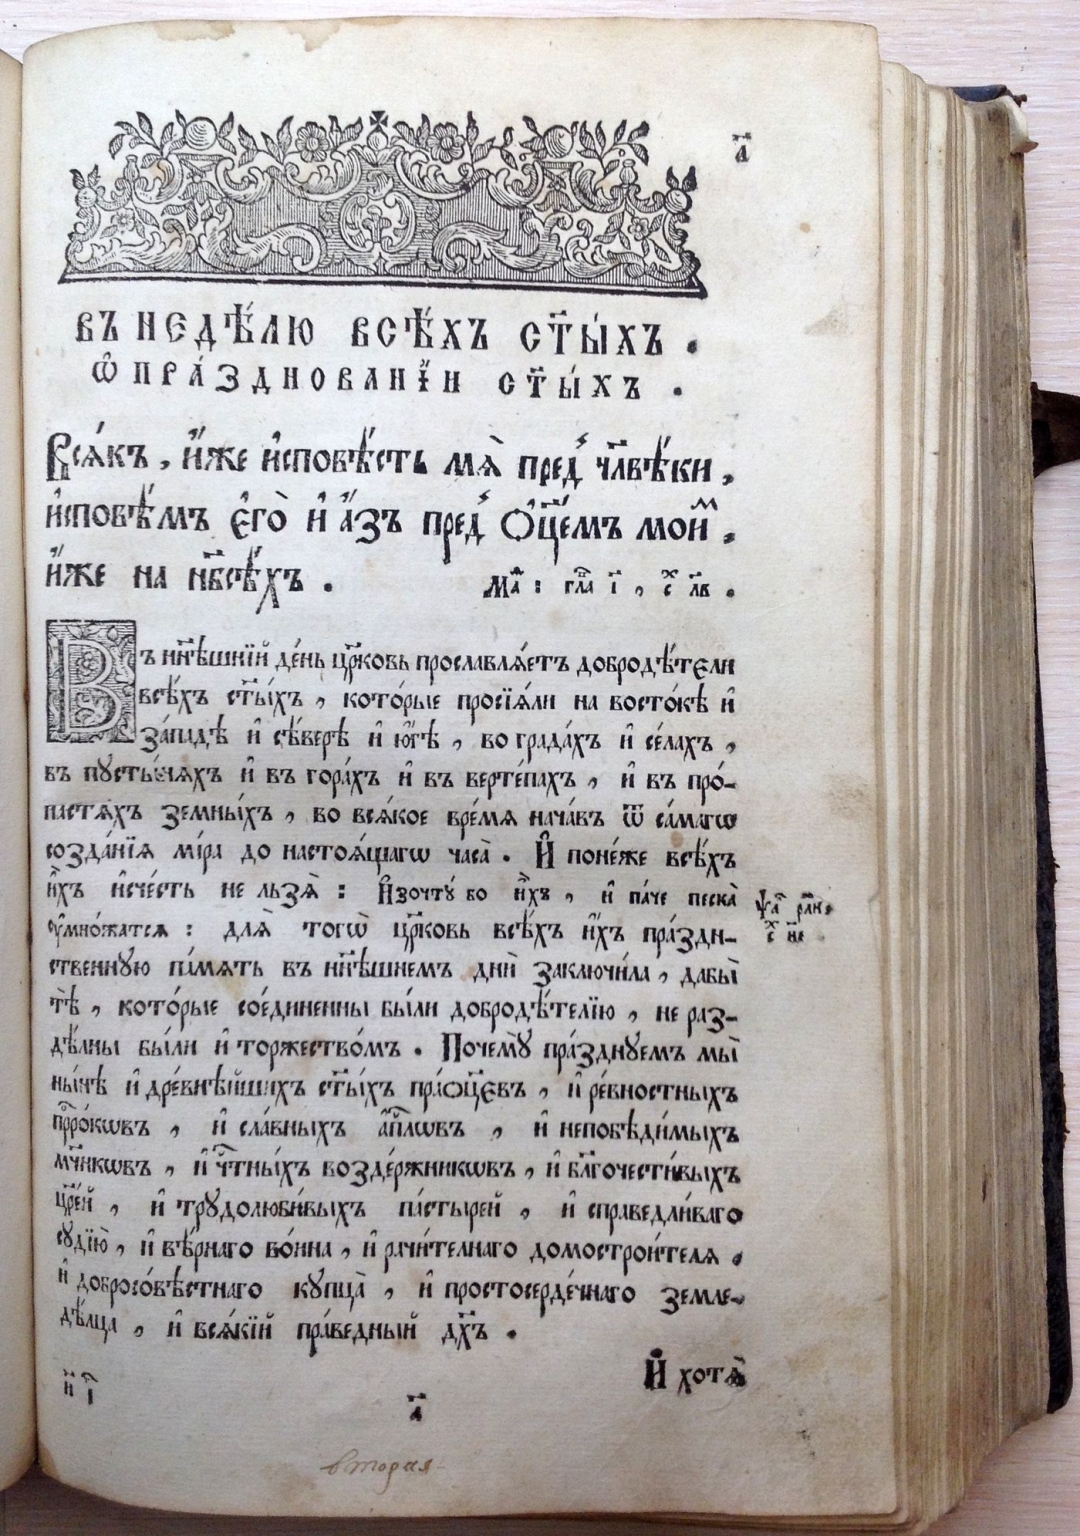 а҃
въ недѣ́лю всѣ́хъ ст҃ы́хъ .
ѽ пра́зднованїи ст҃ы́хъ .
Всѧ́къ , и҆́же и҆сповѣ́сть мѧ̀ пред̾ чл҃вѣ́ки ,
и҆сповѣ́мъ є҆го̀ и҆ а҆́зъ пред̾ Ѻ҆ц҃е́мъ мои́мъ ,
и҆́же на нб҃сѣ́хъ . Маѳ : гла і҃ , с лв .
Въ нн҃ѣшнїй де́нь цр҃ковь прославлѧ́етъ добродѣ́тєли
всѣ́хъ ст҃ы́хъ , кото́рые просїѧ́ли на восто́кѣ и҆
за́падѣ и҆ сѣ́верѣ и҆ ю҆́гѣ , во града́хъ и҆ се́лахъ ,
въ пусты́нѧхъ и҆ въ гора́хъ и҆ въ верте́пахъ , и҆ въ про́-
пастѧ́хъ земны́хъ , во всѧ́кое вре́мѧ нача́въ ѿ са́магѡ
созда́нїѧ мі́ра до настоѧ́щагѡ часа̀ . И҆ поне́же всѣ́хъ
и҆̀хъ и҆сче́сть не льзѧ̀ : И҆зочту́ бо и҆̀хъ , и҆ па́че песка̀
ѹ҆мно́жатсѧ : длѧ̀ тогѡ̀ цр҃ковь всѣ́хъ и҆́хъ пра́здн-
ственную па́мѧть въ нн҃ѣшнемъ днѝ заключи́ла , дабы̀
тѣ̀ , кото́рые сое́диненны бы́ли добродѣ́телїю , не раз-
дѣ́лны бы́ли и҆ торжество́мъ . Почему̀ пра́зднуемъ мы̀
ны́нѣ и҆ дре́внѣйшихъ ст҃ы́хъ пра́ѻц҃євъ , и҆ ре́вностныхъ
прⷪ҇ро́кѡвъ , и҆ сла́вныхъ а҆пⷭ҇лѡвъ , и҆ непобѣди́мыхъ
мч҃никѡвъ , и҆ чⷭ҇тны́хъ возде́ржникѡвъ , и҆ бл҃гочести́выхъ
цр҃е́й , и҆ трудолюби́выхъ па́стырей , и҆ справедли́ваго
судїю̀ , и҆ вѣ́рнаго во́ина , и҆ рачи́телнаго домострои́телѧ ,
и҆ добросо́вѣстнаго купца̀ , и҆ простосерде́чнаго земле-
дѣ́лца , и҆ всѧ́кїй пра́ведный дх҃ъ .
Ѱа рл҃и ,
с н҃е
И҆ хотѧ̀
а҃
вторая